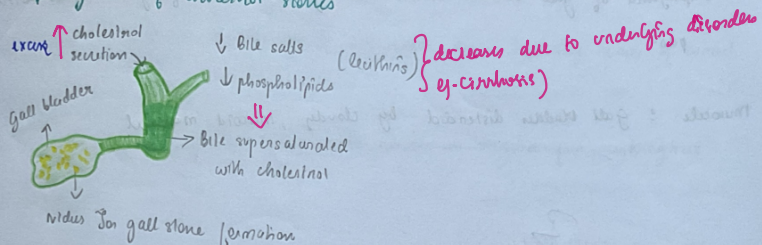 stones
excess ↑ cholestrol
secretion
↓ Bile salts
↓ phospholipids
(lecithins)
decreases due to underlying disorders
eg-cirrhosis)
Gall bladder
Bile supersaturated
with cholestrol
Nidus for gall stone formation